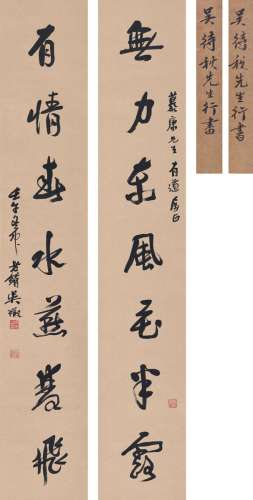 吳待秋先生行書
吳待秋先生行書
慕康先生有道屬正
無力東風花半露
有情春水燕雙飛
壬午冬仲老鋗吳徵